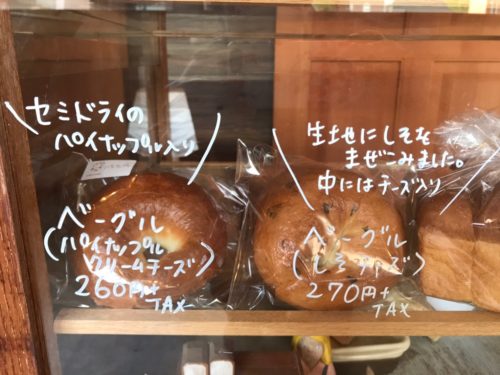 セミドライの
パイナップル入り
ベーグル
(パイナップル
クリームチーズ)
260円+
TAX
生地にしそを
まぜこみました。
中にはチーズ入り
ベーグル
(しそチーズ)
270円+
TAX